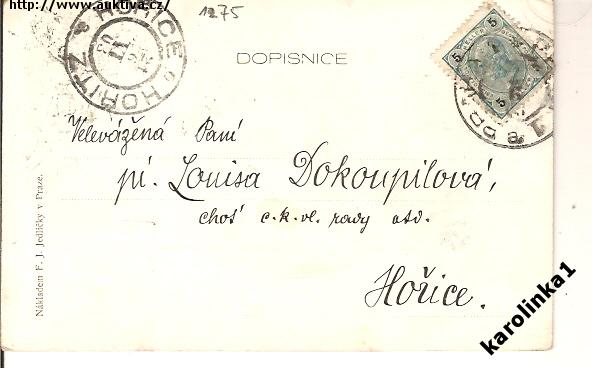 Zdroj: www.auktiva.cz/
1275
HOŘICE
HOŘITZ
DOPISNICE
5 5
5 5
Velevážená Paní
pí. Louisa Dokoupilová,
choť c.k.vl. rady atd.
Hořice.
Nákladem F. J. Jedličky v Praze.
karolinka1